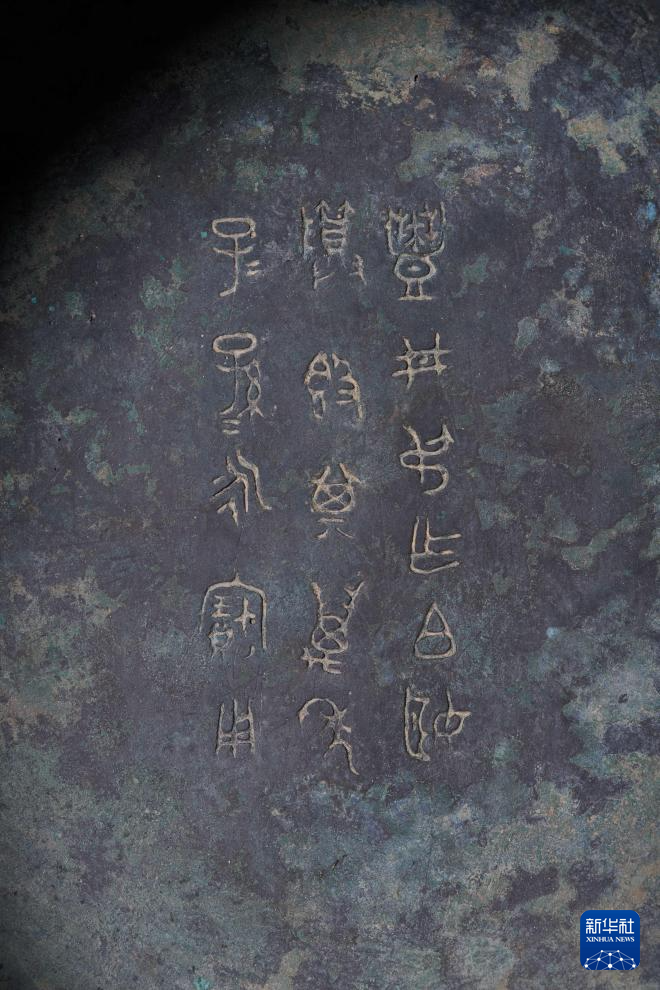 豐井叔乍白姬
尊𣪘其萬年
子=孫=永寶用
新华社
XINHUA NEWS